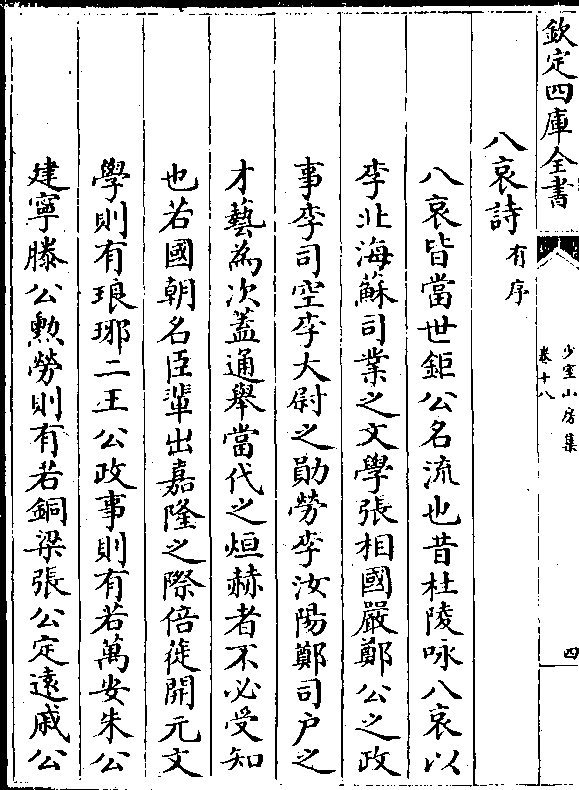 欽定四庫全書
少室山房集
卷十八
四
八哀詩有序
八哀皆當世鉅公名流也昔杜陵咏八哀以
李北海蘇司業之文學張相國嚴鄭公之政
事李司空李大尉之勛勞李汝陽鄭司户之
才藝為次蓋通舉當代之烜赫者不必受知
也若國朝名臣輩出嘉隆之際倍蓰開元文
學則有琅琊二王公政事則有若萬安朱公
建寧滕公勲勞則有若銅梁張公定遠戚公